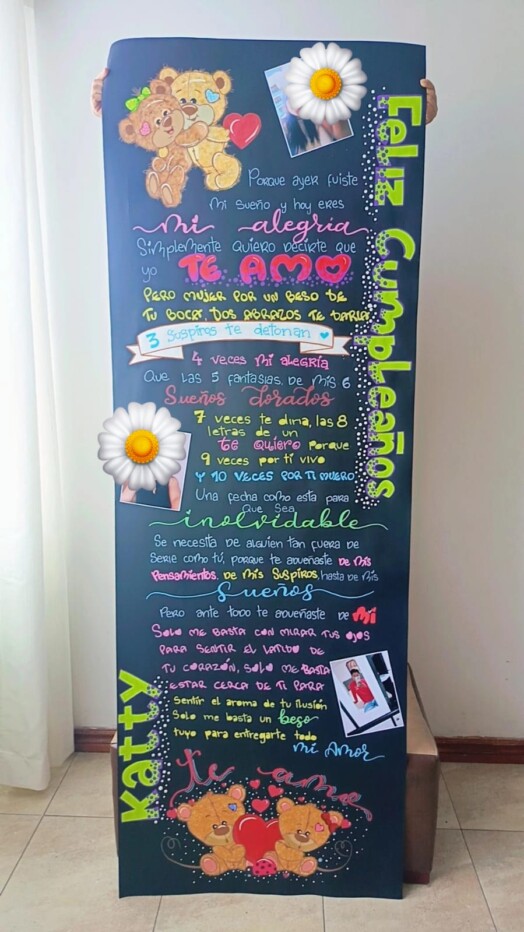 Feliz Cumpleaños
Porque ayer fuiste
mi sueño y hoy eres
mi alegría
Simplemente quiero decirte que
yo TE AMO
PERO MUJER POR UN BESO DE
TU BOCA, DOS ABRAZOS TE DARIA
3 Suspiros te detonan
4 veces mi alegría
Que las 5 fantasias, de mis 6
Sueños dorados
7 veces te diria, las 8
letras de un
te quiero porque
9 veces por ti vivo
Y 10 VECES POR TI MUERO
Una fecha como esta para
que sea
inolvidable
Se necesita de alguien tan fuera de
Serie como tú, porque te adueñaste de mis
Pensamientos, de mis suspiros, hasta de mis
Sueños
Pero ante todo te adueñaste de mí
Solo me basta con mirar tus ojos
para sentir el latido de
tu corazón, solo me basta
estar cerca de ti para
Sentir el aroma de tu ilusión
Solo me basta un beso
tuyo para entregarte todo
mi Amor
Katty
te amo